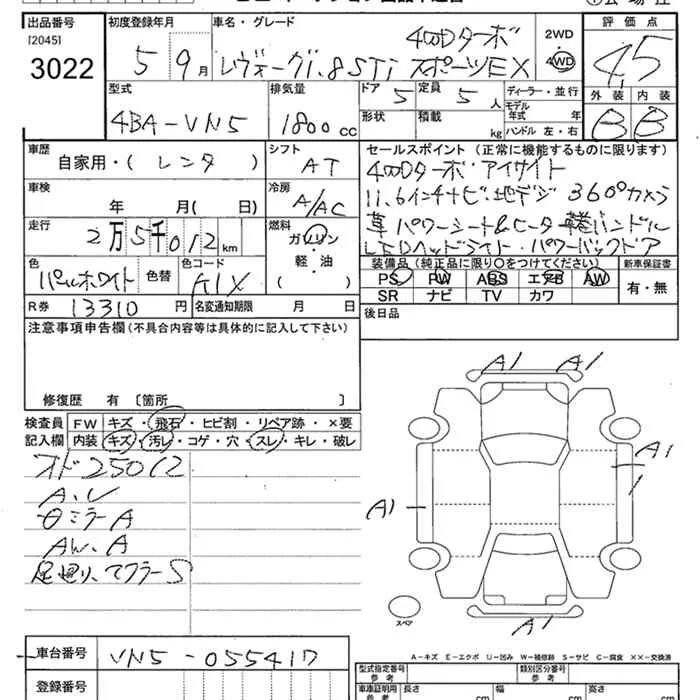 出品番号 初度登録年月 車名・グレード 評価点
[2045]
3022
5 9月
4WDターボ
レヴォーグ1.8STi スポーツEX
2WD
4WD
4.5
型式 排気量 ドア 定員 ディーラー・並行 外装 内装
モデル年式 年
4BA-VN5 1800cc 5 5人
形状 積載 kg ハンドル 左・右
B B
車歴 シフト セールスポイント (正常に機能するものに限ります)
自家用・( レンタ ) AT 4WDターボ・アイサイト
車検 冷房
年 月( 日) A/AC 11.6インチナビ・地デジ 360°カメラ
走行 燃料
2万5千012km ガソリン 革 パワーシート&ヒータ 革巻ハンドル
軽・油 LEDヘッドライト・パワーバックドア
色 色替 色コード ( )
パールホワイト K1X
装備品 (純正品に限り○をつけてください) 新車保証書
PS PW ABS エアB AW 有・無
SR ナビ TV カワ
R券 13310円 名変通知期限 月 日
後日品
注意事項申告欄(不具合内容等は具体的に記入して下さい)
修復歴 有 [箇所 ]
検査員記入欄
FW キズ・飛石・ヒビ割・リペア跡・×要
内装 キズ・汚レ・コゲ・穴・スレ・キレ・破レ
オド25012
A.U
ミラーA
AW.A
足廻り、マフラーS
A1 A1
A1
A1
A1
スペア
A-キズ E-エクボ U-凹み W-補修跡 S-サビ C-腐食 ××-交換済
車台番号 VN5-055417
登録番号
型式指定番号 参考 類別区分番号 参考
車庫証明用 参考 長さ cm 幅 cm 高さ cm